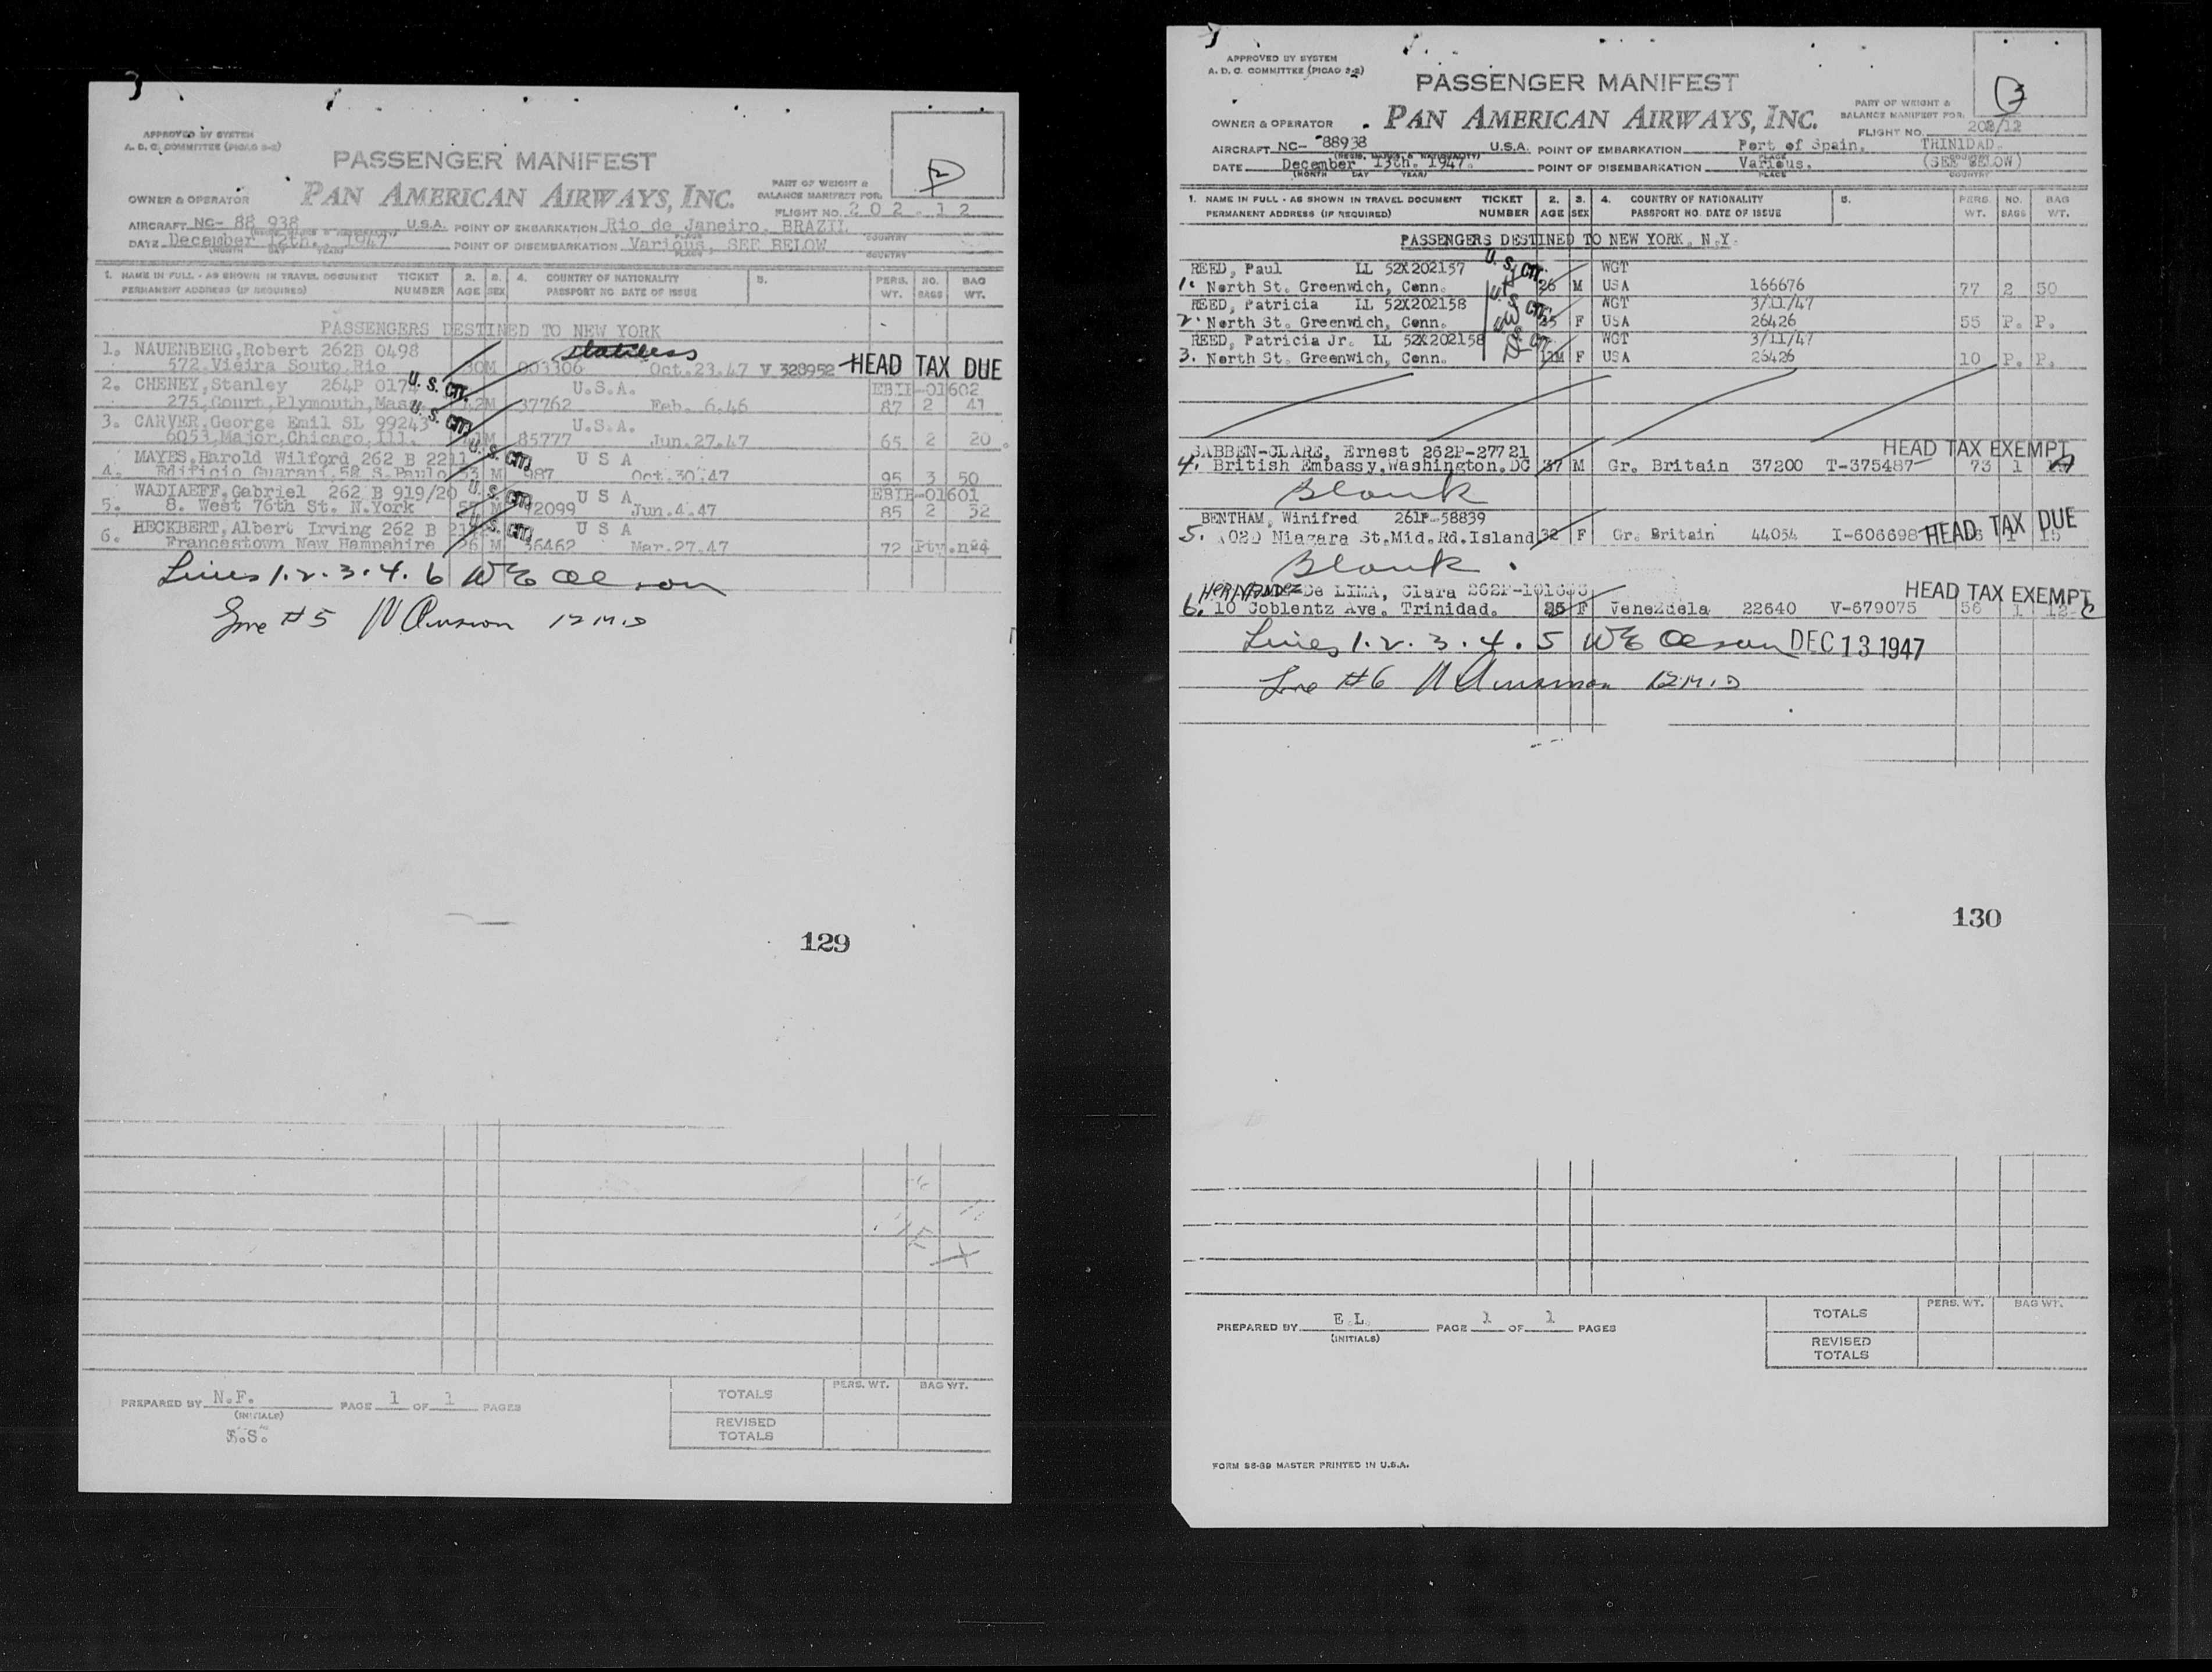 APPROVED BY SYSTEM
A. D. C. COMMITTEE (PICAO 2-2)
PASSENGER MANIFEST
OWNER & OPERATOR PAN AMERICAN AIRWAYS, INC.
PART OF WEIGHT &
BALANCE MANIFEST FOR:
FLIGHT NO. 202-12
2
AIRCRAFT NC- 88 938 U.S.A. POINT OF EMBARKATION Rio de Janeiro, BRAZIL
DATE December 12th., 1947 POINT OF DISEMBARKATION Various, SEE BELOW
(MONTH DAY YEAR) PLACE COUNTRY
1. NAME IN FULL - AS SHOWN IN TRAVEL DOCUMENT TICKET 2. 3. 4. COUNTRY OF NATIONALITY 5. PERS. NO. BAG
PERMANENT ADDRESS (IF REQUIRED) NUMBER AGE SEX PASSPORT NO DATE OF ISSUE WT. BAGS WT.
PASSENGERS DESTINED TO NEW YORK
1. NAUENBERG, Robert 262B 0498 stateless
572, Vieira Souto, Rio 30 M 003306 Oct.23.47 V 328952 HEAD TAX DUE
2. CHENEY, Stanley 264P 0174 U. S. CIT. U.S.A. EBIH-01602
275, Court, Plymouth, Mass M 37762 Feb. 6.46 87 2 41
3. CARVER, George Emil SL 99243 U. S. CIT. U.S.A.
6053, Major, Chicago, Ill. M 85777 Jun.27.47 65 2 20
MAYES, Harold Wilford 262 B 2211 U. S. CIT. U S A
4. Edificio Guarani, 58 S. Paulo M 987 Oct.30.47 95 3 50
WADIAEFF, Gabriel 262 B 919/20 U. S. CIT. U S A EBIH-01601
5. 8. West 76th St. N.York M 2099 Jun.4.47 85 2 32
HECKBERT, Albert Irving 262 B U. S. CIT. U S A
6. Francestown New Hampshire 26 M 36462 Mar.27.47 72
Lines 1. 2. 3. 4. 6 W E Olson
Line #5
129
PREPARED BY N.F. PAGE 1 OF 1 PAGES
(INITIALS)
TOTALS PERS. WT. BAG WT.
REVISED
TOTALS
APPROVED BY SYSTEM
A. D. C. COMMITTEE (PICAO 2-2)
PASSENGER MANIFEST
OWNER & OPERATOR PAN AMERICAN AIRWAYS, INC.
PART OF WEIGHT &
BALANCE MANIFEST FOR:
FLIGHT NO. 202/12
3
AIRCRAFT NC- 88938 U.S.A. POINT OF EMBARKATION Port of Spain, TRINIDAD.
DATE December 13th. 1947. POINT OF DISEMBARKATION Various. (SEE BELOW)
(MONTH DAY YEAR) PLACE COUNTRY
1. NAME IN FULL - AS SHOWN IN TRAVEL DOCUMENT TICKET 2. 3. 4. COUNTRY OF NATIONALITY 5. PERS. NO. BAG
PERMANENT ADDRESS (IF REQUIRED) NUMBER AGE SEX PASSPORT NO. DATE OF ISSUE WT. BAGS WT.
PASSENGERS DESTINED TO NEW YORK, N.Y.
REED, Paul LL 52X202157 U. S. CIT. WGT
1. North St. Greenwich, Conn. 26 M USA 166676 77 2 50
REED, Patricia LL 52X202158 U. S. CIT. WGT 3/11/47
2. North St. Greenwich, Conn. F USA 26426 55 P. P.
REED, Patricia Jr. LL 52X202158 U. S. CIT. WGT 3/11/47
3. North St. Greenwich, Conn. M F USA 26426 10 P. P.
SABBEN-CLARE, Ernest 262P-27721 HEAD TAX EXEMPT
4. British Embassy, Washington. DC 37 M Gr. Britain 37200 T-375487 73 1
Blank
BENTHAM, Winifred 261P-58839
5. Niagara St. Mid. Rd. Island 32 F Gr. Britain 44054 I-606698 HEAD TAX DUE 1 15
Blank
HERNANDEZ De LIMA, Clara HEAD TAX EXEMPT
6. 10 Coblentz Ave. Trinidad. F Venezuela 22640 V-679075 56 1 12
Lines 1. 2. 3. 4. 5 W E Olson DEC 13 1947
Line #6
130
PREPARED BY E.L. PAGE 1 OF 1 PAGES
(INITIALS)
TOTALS PERS. WT. BAG WT.
REVISED
TOTALS
FORM S6-39 MASTER PRINTED IN U.S.A.